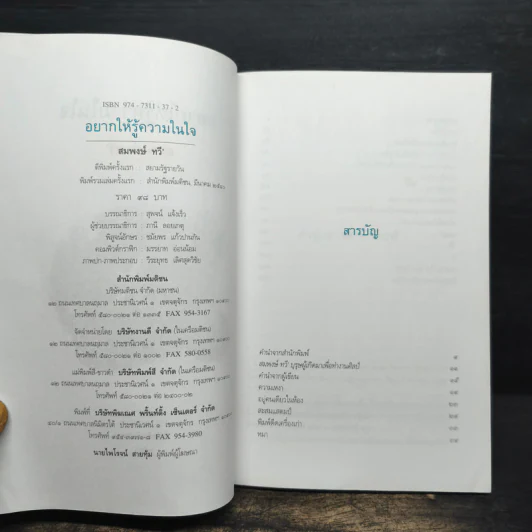 ISBN 974 - 7311 - 37 - 2
อยากให้รู้ความในใจ
สมพงษ์ ทวี'
ตีพิมพ์ครั้งแรก : สยามรัฐรายวัน
พิมพ์รวมเล่มครั้งแรก : สำนักพิมพ์มติชน, มีนาคม ๒๕๔๑
ราคา ๙๘ บาท
บรรณาธิการ : สุพจน์ แจ้งเร็ว
ผู้ช่วยบรรณาธิการ :
พิสูจน์อักษร :
คอมพิวต์กราฟิก :
ภาพปก-ภาพประกอบ : วีระยุทธ เลิศสุดวิชัย
สำนักพิมพ์มติชน
บริษัทมติชน จำกัด (มหาชน)
๑๒ ถนนเทศบาลนฤมาล ประชานิเวศน์ ๑ เขตจตุจักร กรุงเทพฯ
โทรศัพท์ ๕๘๐-๐๐๒๑ ต่อ ๑๒๓๕ FAX 954-3167
จัดจำหน่ายโดย บริษัทงานดี จำกัด (ในเครือมติชน)
๑๒ ถนนเทศบาลนฤมาล ประชานิเวศน์ ๑ เขตจตุจักร กรุงเทพฯ
โทรศัพท์ ๕๘๐-๐๐๒๑ ต่อ FAX 580-0558
แม่พิมพ์สี-ขาวดำ (ในเครือมติชน)
๑๒ ถนนเทศบาลนฤมาล ประชานิเวศน์ ๑ เขตจตุจักร กรุงเทพฯ
โทรศัพท์ ๕๘๐-๐๐๒๑ ต่อ
พิมพ์ที่ บริษัทพิฆเณศ พริ้นท์ติ้ง เซ็นเตอร์ จำกัด
ประชานิเวศน์ ๑ เขตจตุจักร กรุงเทพฯ
โทรศัพท์ FAX 954-3980
นายไพโรจน์ สายทุ้ม ผู้พิมพ์ผู้โฆษณา
สารบัญ
คำนำจากสำนักพิมพ์
สมพงษ์ ทวี' บุรุษผู้เกิดมาเพื่อทำงานศิลป์
คำนำจากผู้เขียน
ความเหงา
อยู่คนเดียวในห้อง
สะสมแสตมป์
พิมพ์ดีดเครื่องเก่า
หมา